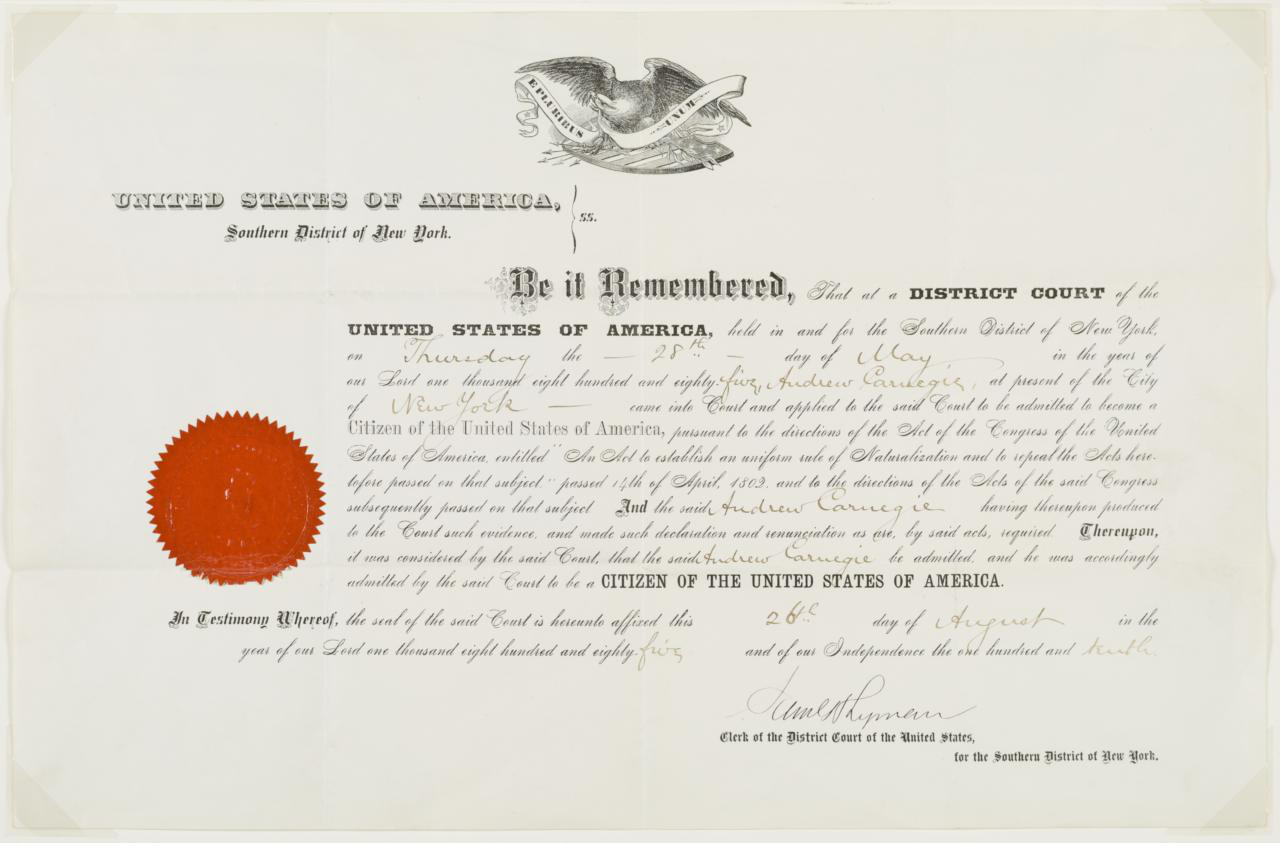 E PLURIBUS UNUM
UNITED STATES OF AMERICA, ss.
Southern District of New York.
Be it Remembered, That at a DISTRICT COURT of the
UNITED STATES OF AMERICA, held in and for the Southern District of New York,
on Thursday the — 28th — day of May in the year of
our Lord one thousand eight hundred and eighty-five, Andrew Carnegie, at present of the City
of New York — came into Court and applied to the said Court to be admitted to become a
Citizen of the United States of America, pursuant to the directions of the Act of the Congress of the United
States of America, entitled "An Act to establish an uniform rule of Naturalization and to repeal the Acts here-
tofore passed on that subject," passed 14th of April, 1802, and to the directions of the Acts of the said Congress
subsequently passed on that subject And the said Andrew Carnegie having thereupon produced
to the Court such evidence, and made such declaration and renunciation as are, by said acts, required Thereupon,
it was considered by the said Court, that the said Andrew Carnegie be admitted, and he was accordingly
admitted by the said Court to be a CITIZEN OF THE UNITED STATES OF AMERICA.
In Testimony Whereof, the seal of the said Court is hereunto affixed this 26th day of August in the
year of our Lord one thousand eight hundred and eighty-five and of our Independence the one hundred and tenth.
Saml H Lyman
Clerk of the District Court of the United States,
for the Southern District of New York.